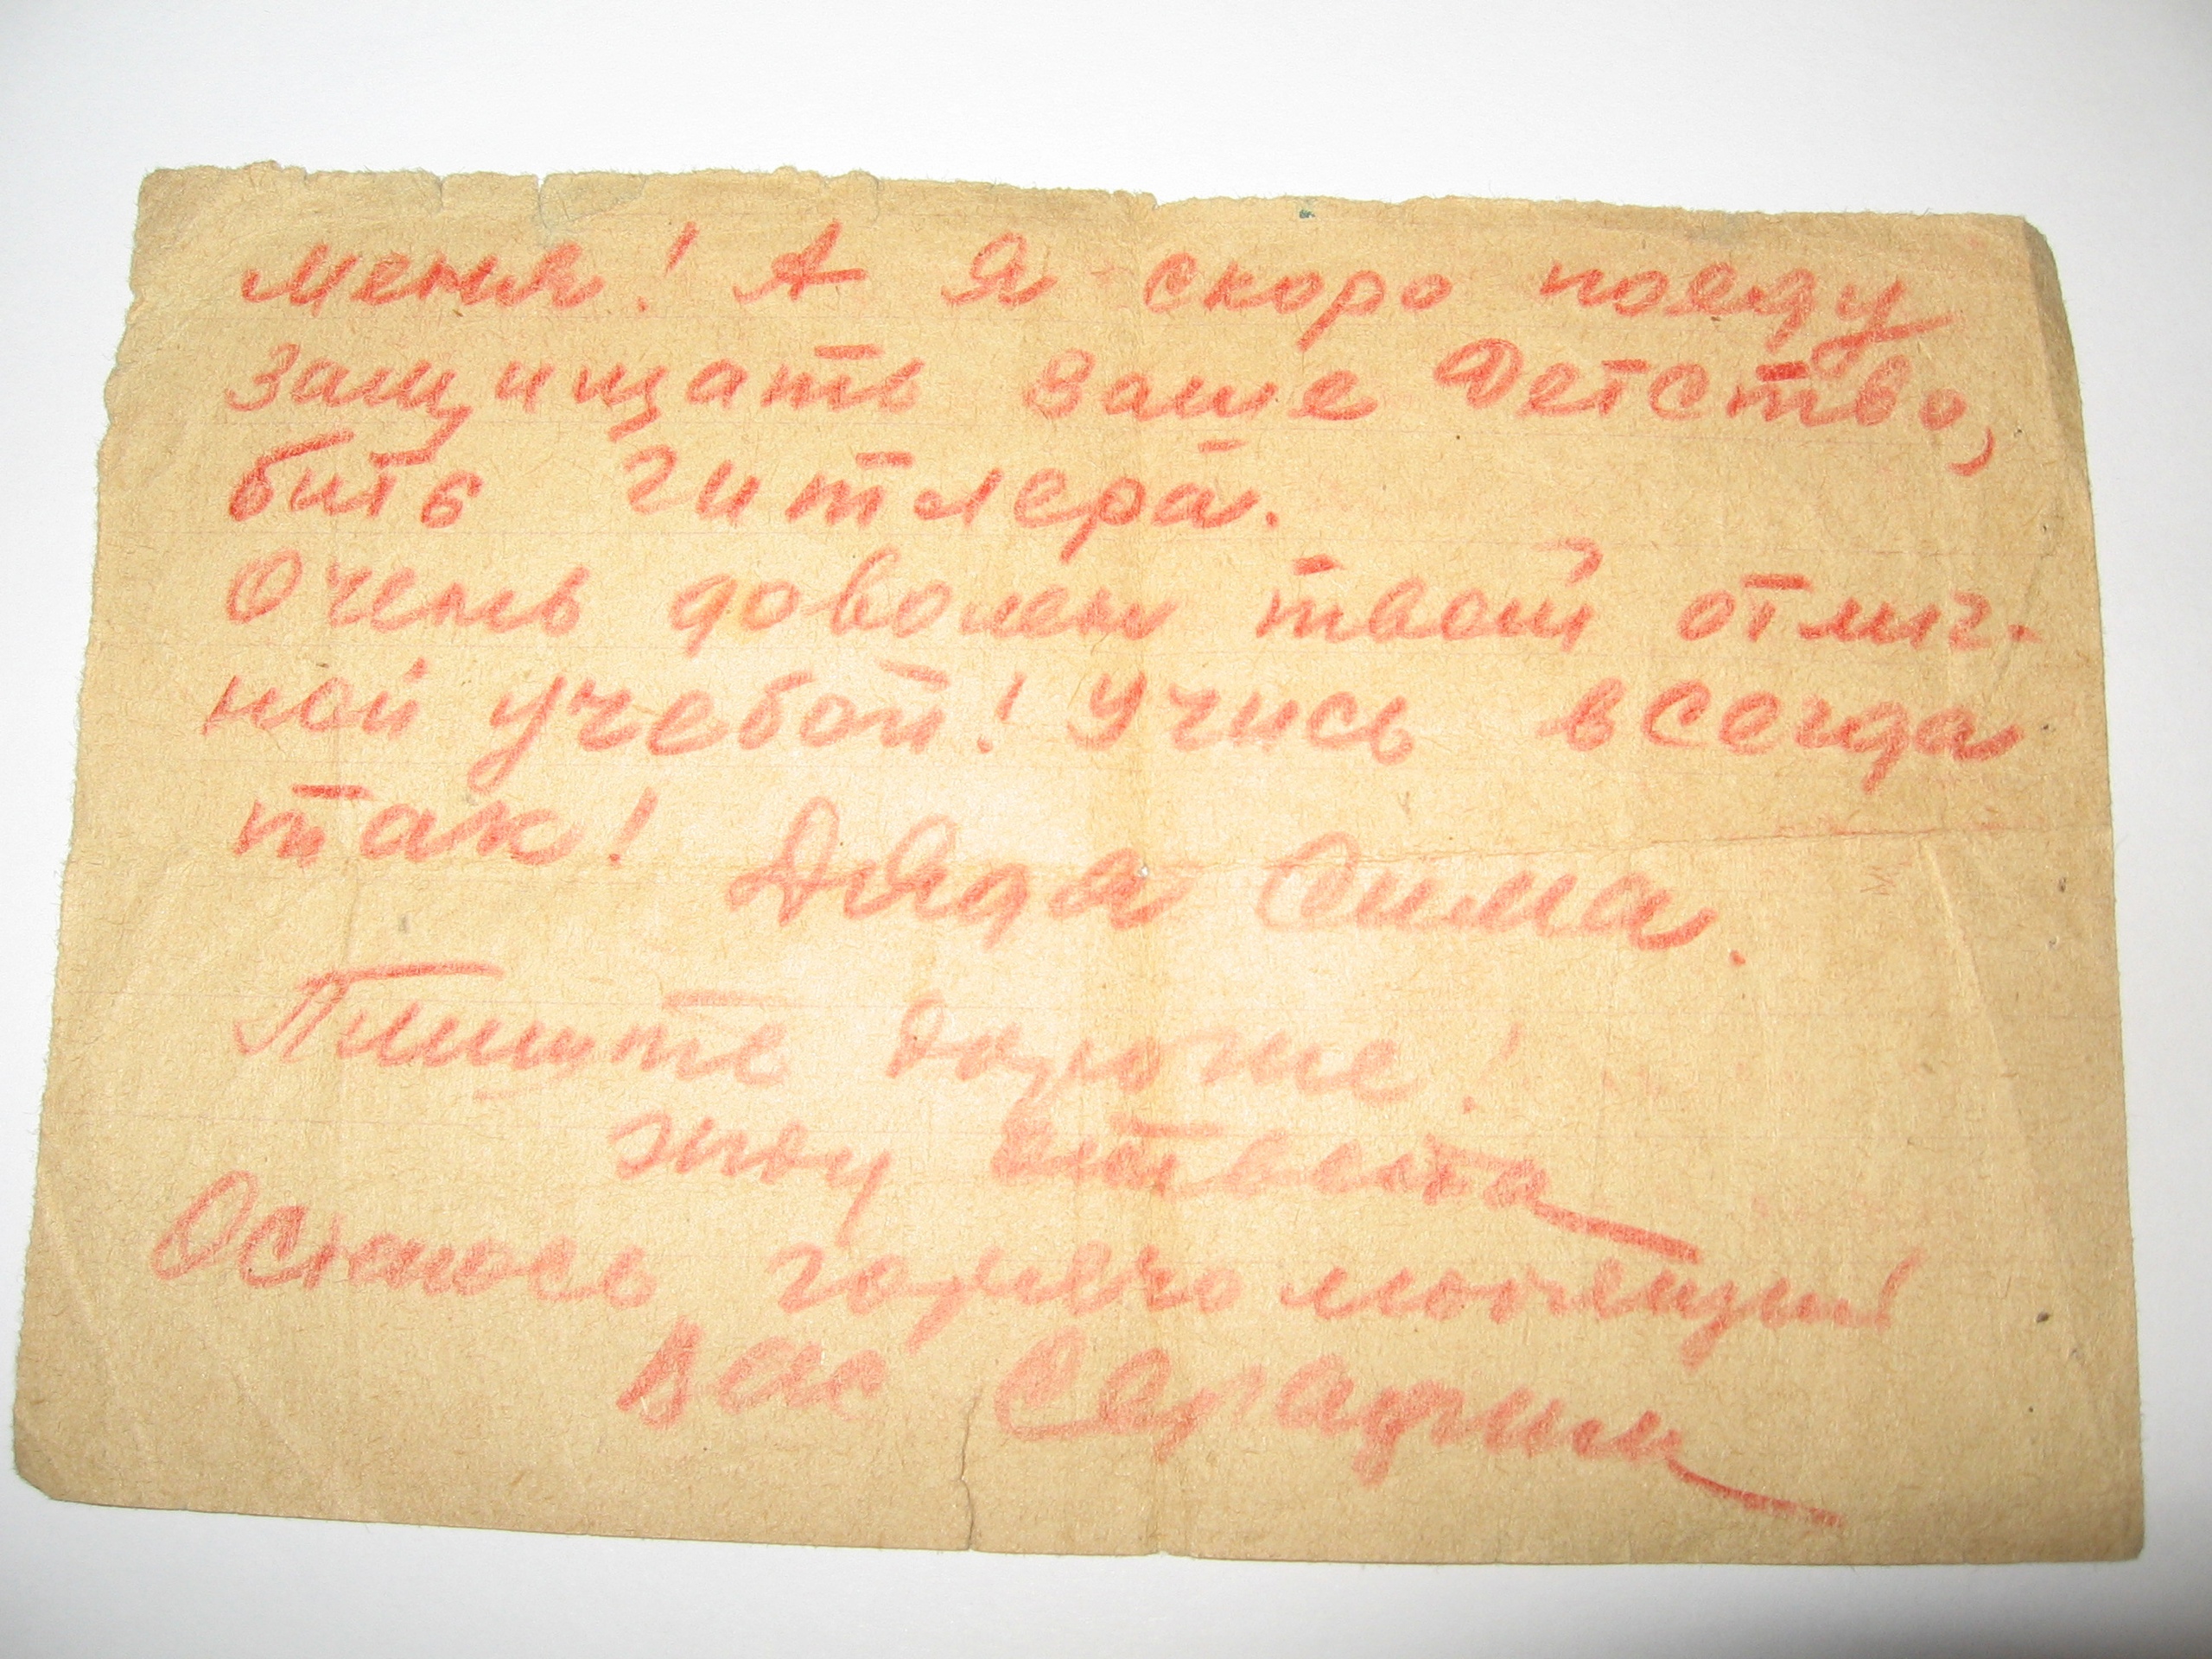 меня! А Я скоро поеду
защищать ваше Детство,
бить гитлера.
Очень доволен твоей отлич-
ной учебой! Учись всегда
так! Дядя Сима.
Пишите дороже!
жду ответа
Остаюсь горячо любящий
Вас Серафим